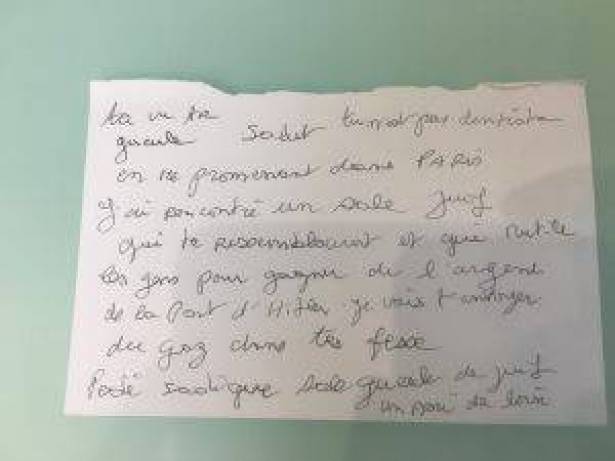 ta vu ta
gueule salut tu n'est pas dentiste
en me promenant dans PARIS
J'ai rencontré un sale juif
qui te ressemblaint et qui mutile
les gens pour gagner de l'argent
de la Part d'Hitler je vais t'envoyer
du gaz dans tes fesse
Pédé sadique sale gueule de juif
un ami de loin